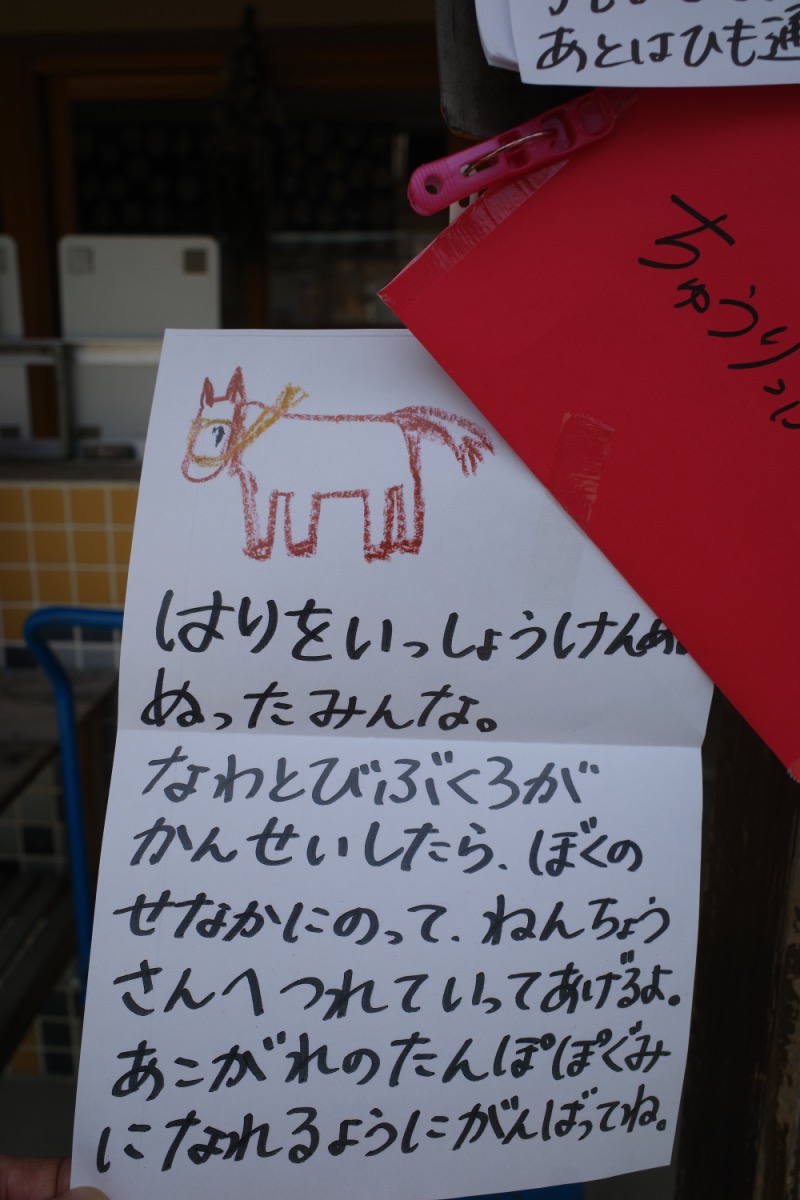 あとはひも通
ちゅうりっ
はりをいっしょうけんめ
ぬったみんな。
なわとびぶくろが
かんせいしたら、ぼくの
せなかにのって、ねんちょう
さんへつれていってあげるよ。
あこがれのたんぽぽぐみ
になれるようにがんばってね。